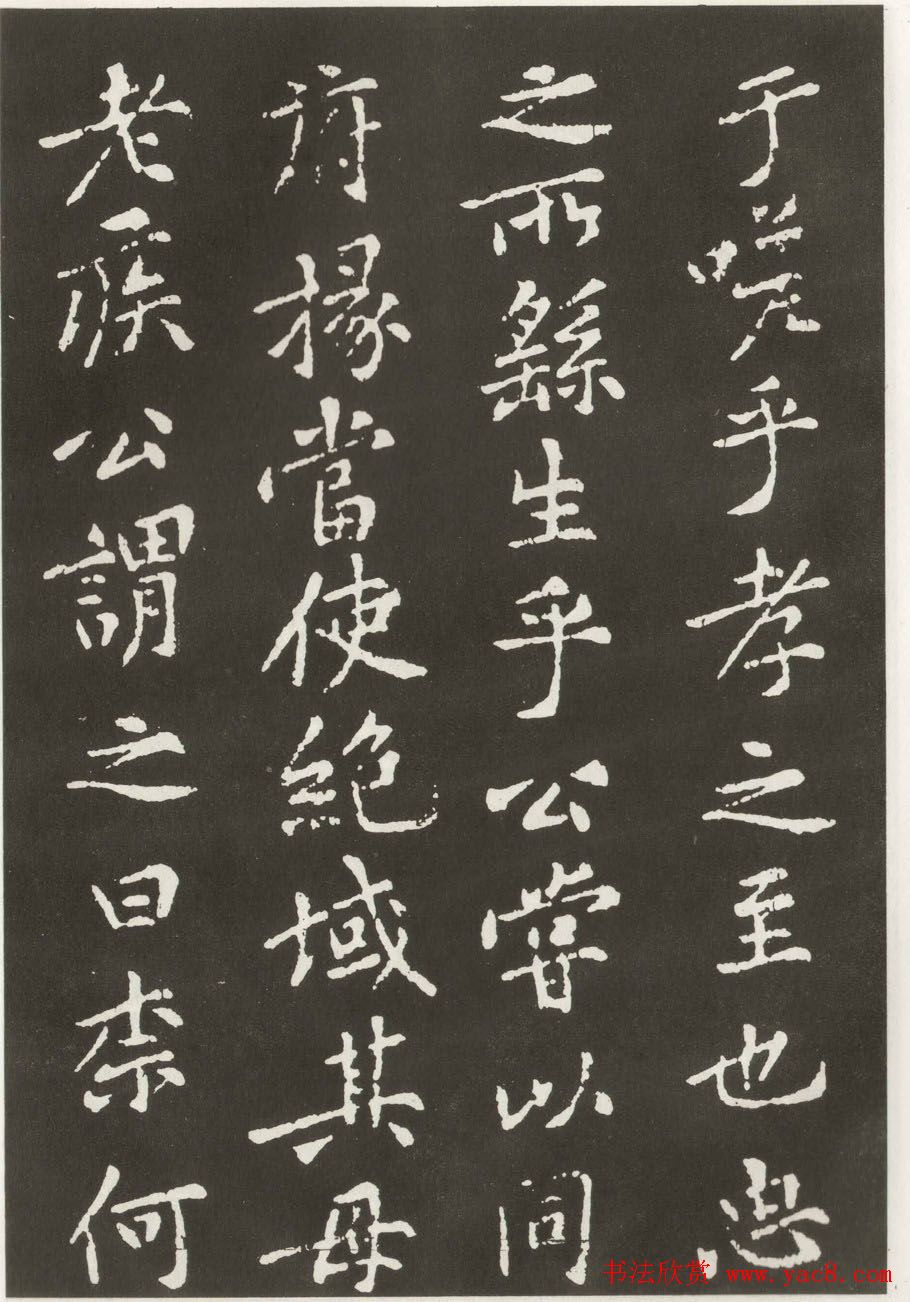 于嗟乎孝之至也忠
之所繇生乎公嘗以同
府掾當使絕域其母
老疾公謂之曰柰何
书法欣赏 www.yac8.com